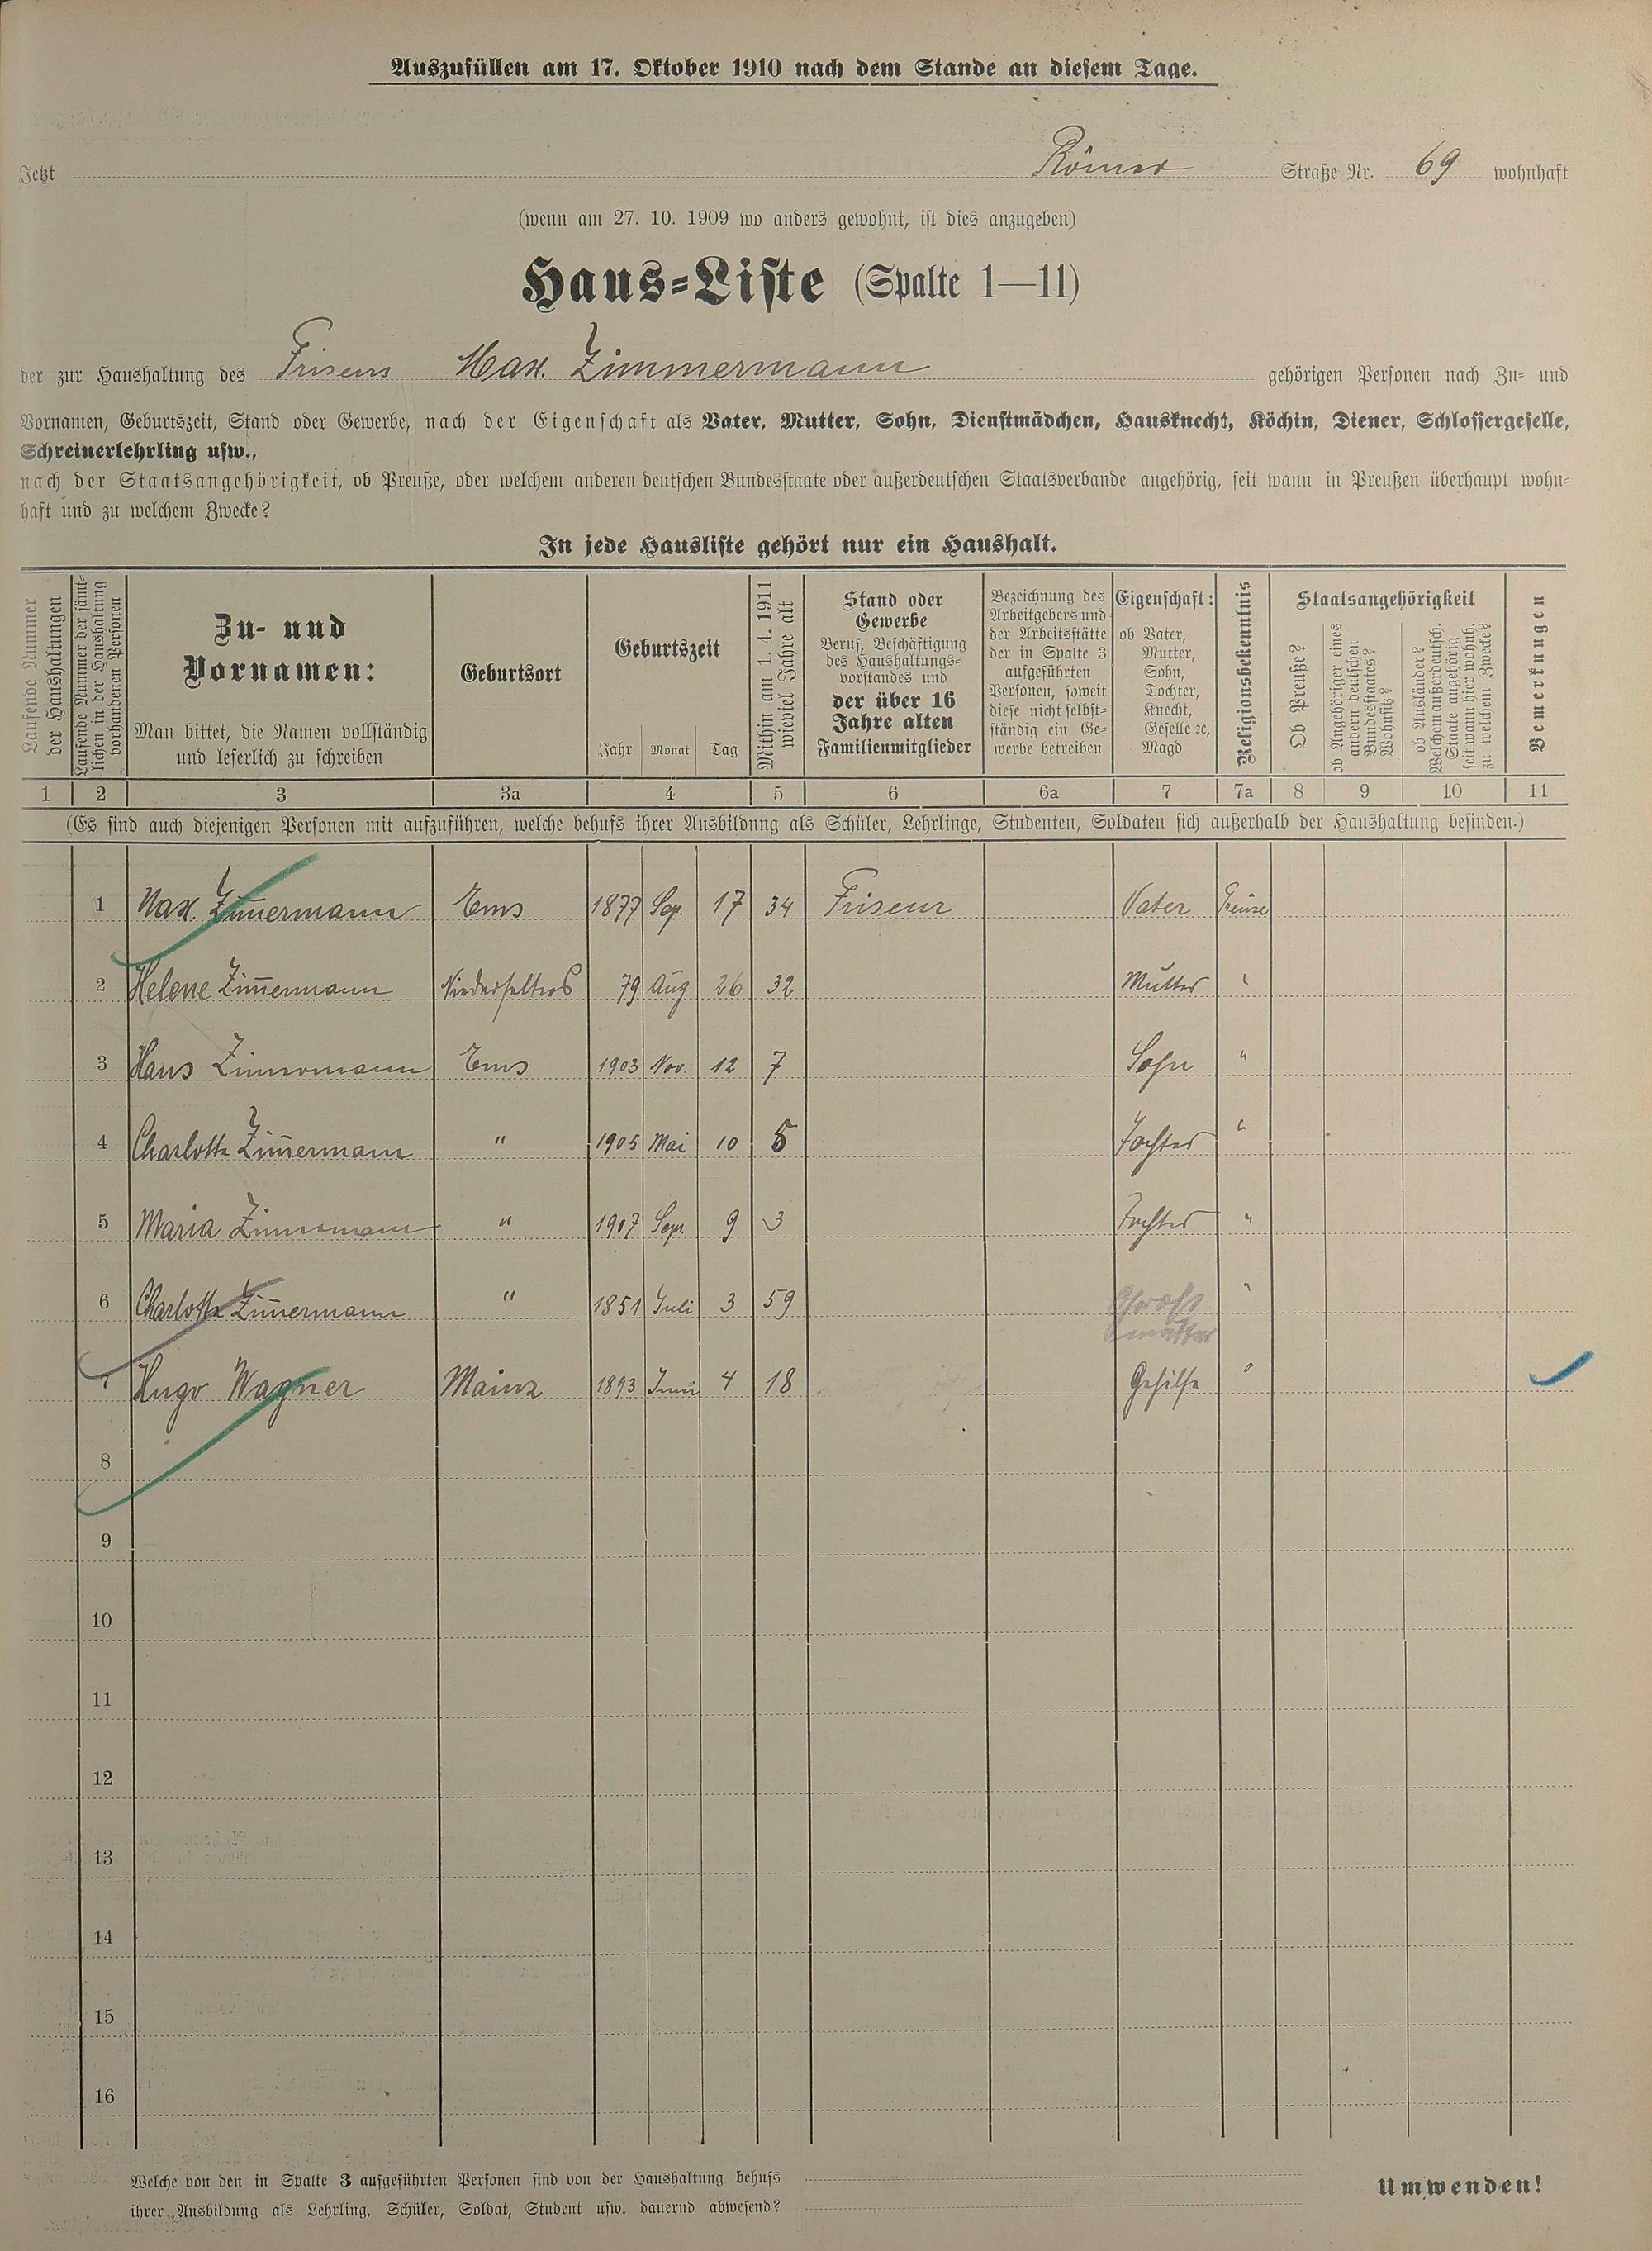 Auszufüllen am 17. Oktober 1910 nach dem Stande an diesem Tage.
Jetzt Römer Straße Nr. 69 wohnhaft
(wenn am 27. 10. 1909 wo anders gewohnt, ist dies anzugeben)
Haus-Liste (Spalte 1—11)
der zur Haushaltung des Friseurs Max Zimmermann gehörigen Personen nach Zu- und
Vornamen, Geburtszeit, Stand oder Gewerbe, nach der Eigenschaft als Vater, Mutter, Sohn, Dienstmädchen, Hausknecht, Köchin, Diener, Schlossergeselle,
Schreinerlehrling usw.,
nach der Staatsangehörigkeit, ob Preuße, oder welchem anderen deutschen Bundesstaate oder außerdeutschen Staatsverbande angehörig, seit wann in Preußen überhaupt wohn-
haft und zu welchem Zwecke?
In jede Hausliste gehört nur ein Haushalt.
Laufende Nummer
der Haushaltungen
Laufende Nummer der sämt-
lichen in der Haushaltung
vorhandenen Personen
Zu- und
Vornamen:
Man bittet, die Namen vollständig
und leserlich zu schreiben
Geburtsort
Geburtszeit
Jahr Monat Tag
Mithin am 1. 4. 1911
wieviel Jahre alt
Stand oder
Gewerbe
Beruf, Beschäftigung
des Haushaltungs-
vorstandes und
der über 16
Jahre alten
Familienmitglieder
Bezeichnung des
Arbeitgebers und
der Arbeitsstätte
der in Spalte 3
aufgeführten
Personen, soweit
diese nicht selbst-
ständig ein Ge-
werbe betreiben
Eigenschaft:
ob Vater,
Mutter,
Sohn,
Tochter,
Knecht,
Geselle ec,
Magd
Religionsbekenntnis
Staatsangehörigkeit
Ob Preuße?
ob Angehöriger eines
andern deutschen
Bundesstaates?
Wohnsitz?
ob Ausländer?
Welchem außerdeutsch.
Staate angehörig
seit wann hier wohnh.
zu welchem Zwecke?
Bemerkungen
1 2 3 3a 4 5 6 6a 7 7a 8 9 10 11
(Es sind auch diejenigen Personen mit aufzuführen, welche behufs ihrer Ausbildung als Schüler, Lehrlinge, Studenten, Soldaten sich außerhalb der Haushaltung befinden.)
1 Max. Zim̄ermann Ems 1877 Sep. 17 34 Friseur Vater Preuse
2 Helene Zim̄ermann Niederselters 79 Aug 26 32 Mutter "
3 Hans Zimmermann Ems 1903 Nov. 12 7 Sohn "
4 Charlotte Zim̄ermann " 1905 Mai 10 5 Tochter "
5 Maria Zimmermann " 1907 Sep. 9 3 Tochter "
6 Charlotte Zim̄ermann " 1851 Juli 3 59 Groß "
mutter
7 Hugo Wagner Mainz 1893 Juni 4 18 Gehilfe "
8
9
10
11
12
13
14
15
16
Welche von den in Spalte 3 aufgeführten Personen sind von der Haushaltung behufs
ihrer Ausbildung als Lehrling, Schüler, Soldat, Student usw. dauernd abwesend?
Umwenden!